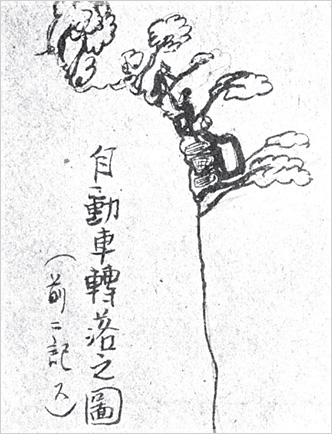 自動車轉落之圖
(前ニ記ス)